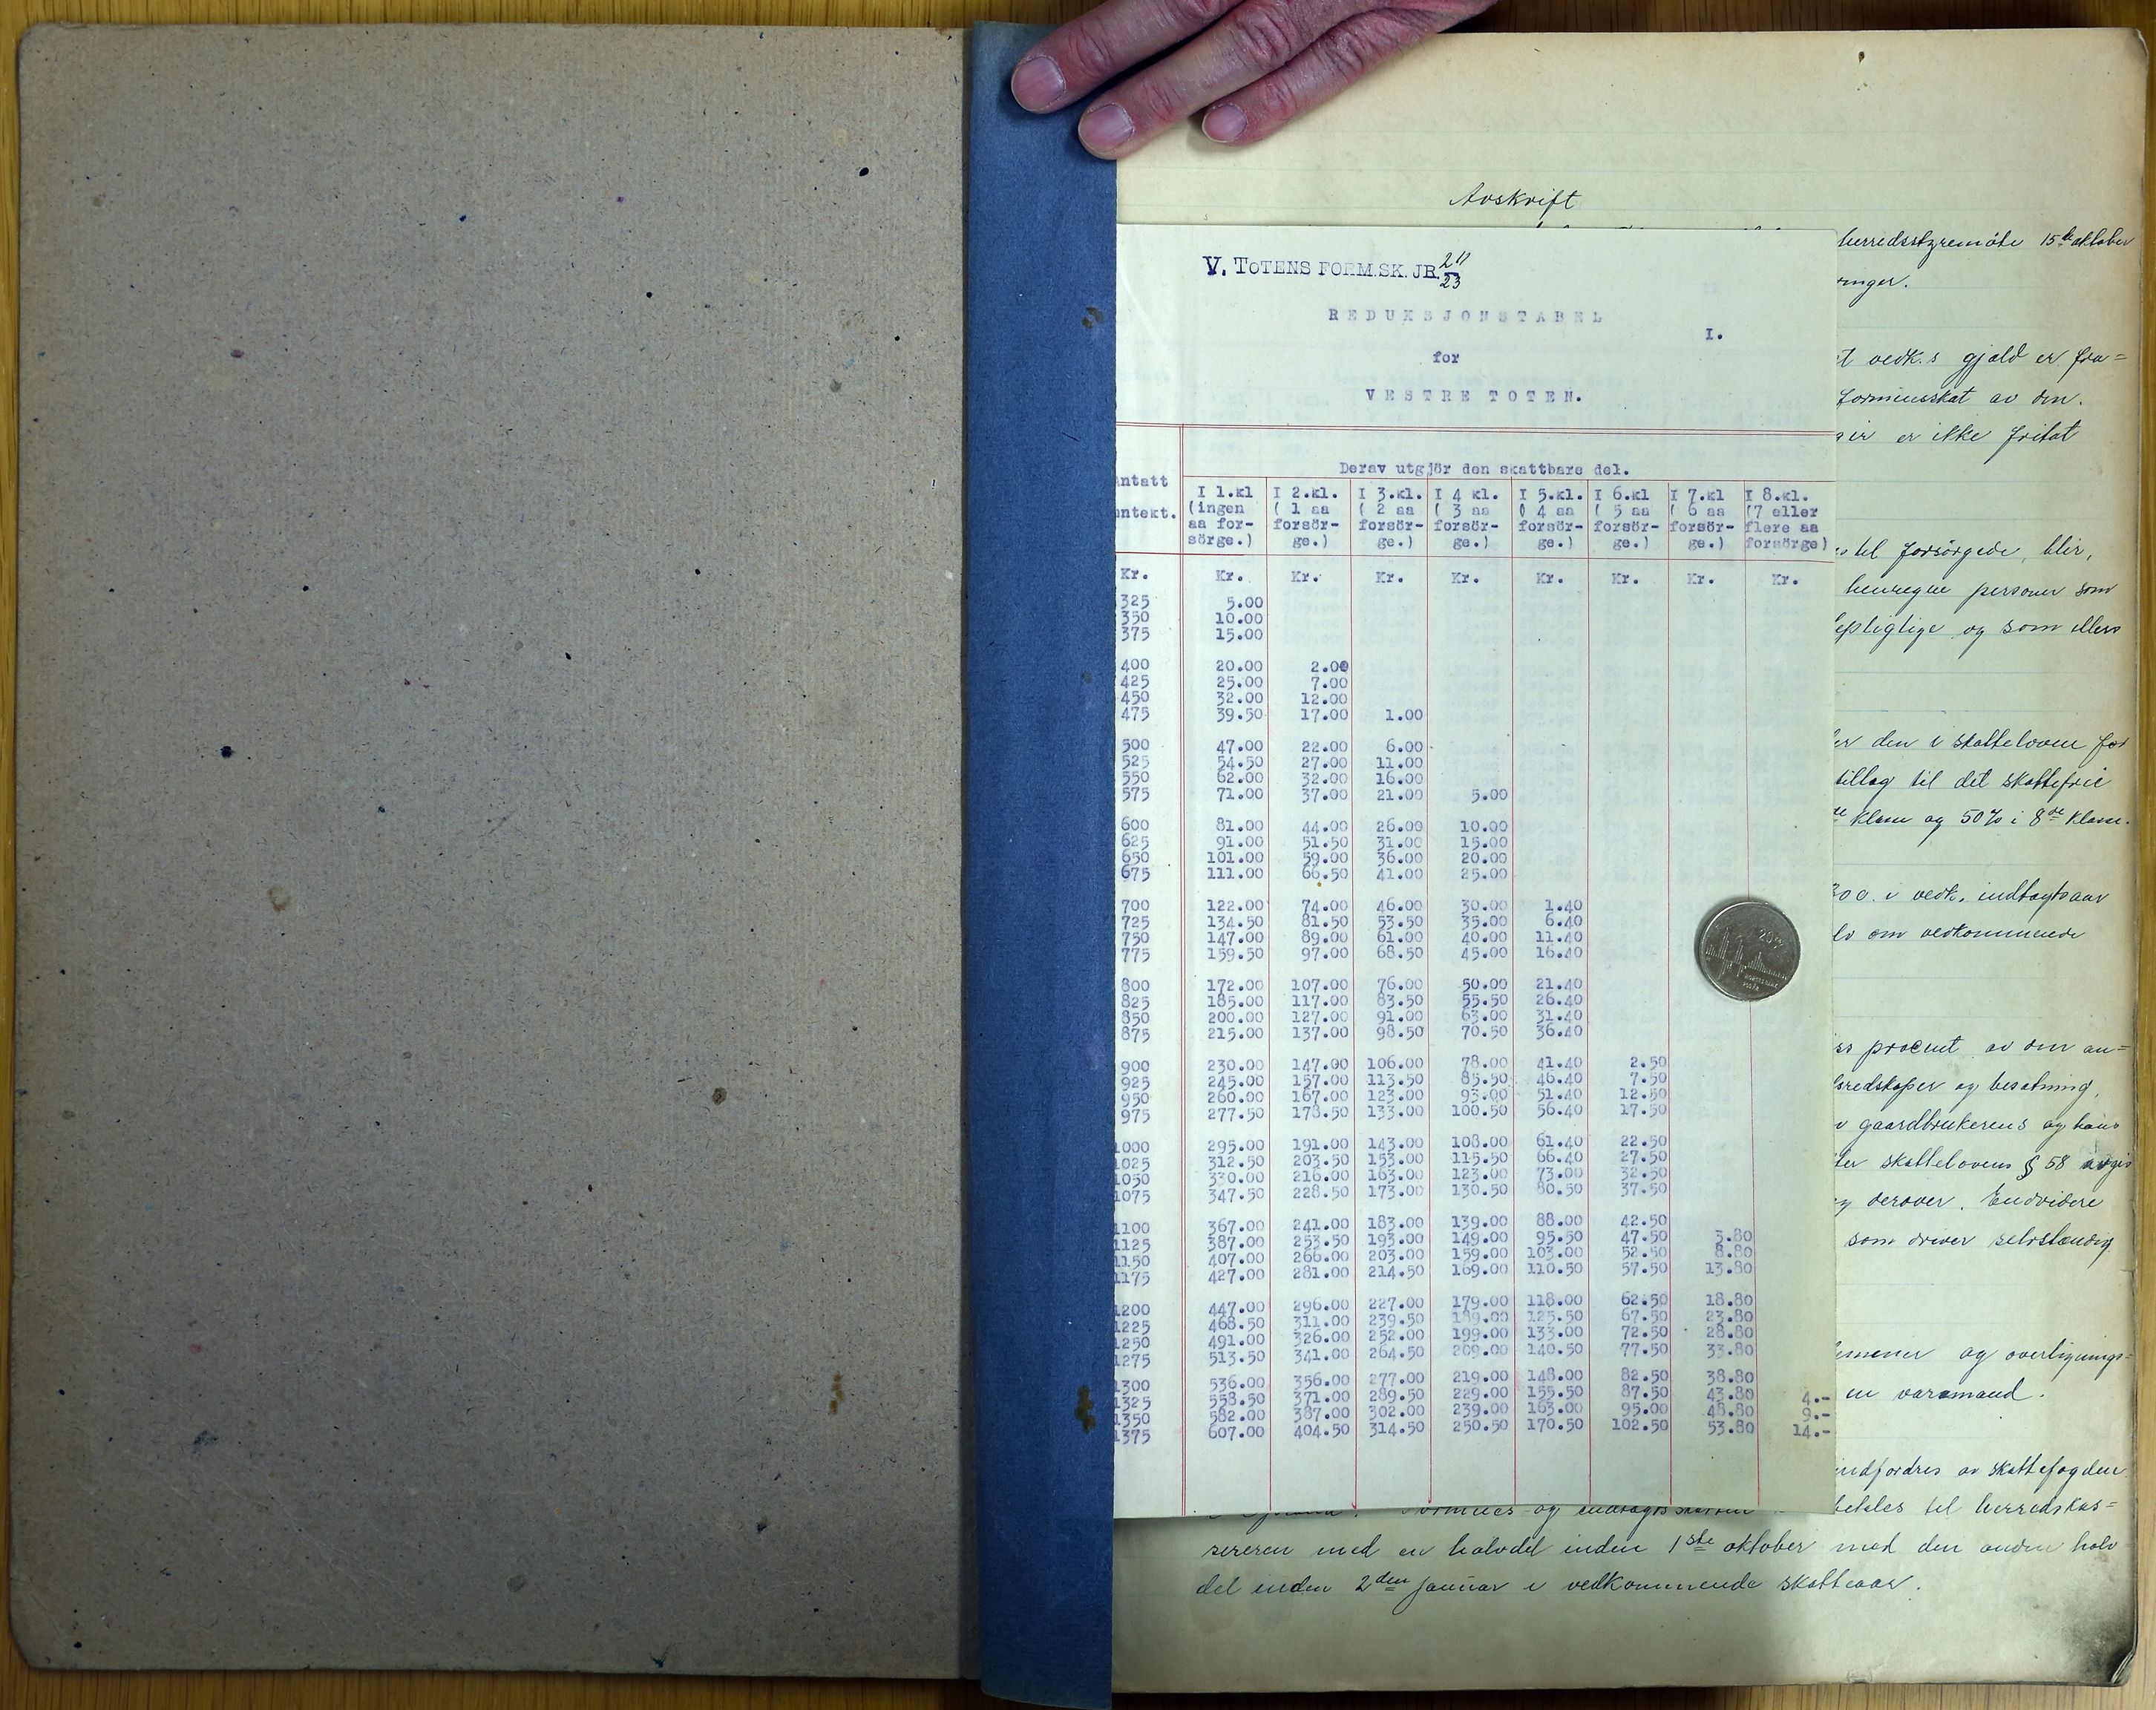 Avskrift
herredsstyremöte 15de oktober
V. TOTENS FORM.SK. JR. 211/23
ringer.
REDUKSJONSTABEL
I.
for
t vedk.s gjæld er fra=
VESTRE TOTEN.
formuesskat av den.
er ikke fritat
Derav utgjör den skattbare del.
ntatt
nntekt.
I 1.kl (ingen aa for- sörge.)
I 2.kl. ( 1 aa forsör- ge.)
I 3.kl. ( 2 aa forsör- ge.)
I 4 kl. ( 3 aa forsör- ge.)
I 5.kl. ( 4 aa forsör- ge.)
I 6.kl ( 5 aa forsör- ge.)
I 7.kl ( 6 aa forsör- ge.)
I 8.kl. (7 eller flere aa forsörge)
Kr. Kr. Kr. Kr. Kr. Kr. Kr. Kr. Kr.
325 5.00
350 10.00
375 15.00
400 20.00 2.00
425 25.00 7.00
450 32.00 12.00
475 39.50 17.00 1.00
500 47.00 22.00 6.00
525 54.50 27.00 11.00
550 62.00 32.00 16.00
575 71.00 37.00 21.00 5.00
600 81.00 44.00 26.00 10.00
625 91.00 51.50 31.00 15.00
650 101.00 59.00 36.00 20.00
675 111.00 66.50 41.00 25.00
700 122.00 74.00 46.00 30.00 1.40
725 134.50 81.50 53.50 35.00 6.40
750 147.00 89.00 61.00 40.00 11.40
775 159.50 97.00 68.50 45.00 16.40
800 172.00 107.00 76.00 50.00 21.40
825 185.00 117.00 83.50 55.50 26.40
850 200.00 127.00 91.00 63.00 31.40
875 215.00 137.00 98.50 70.50 36.40
900 230.00 147.00 106.00 78.00 41.40 2.50
925 245.00 157.00 113.50 85.50 46.40 7.50
950 260.00 167.00 123.00 93.00 51.40 12.50
975 277.50 178.50 133.00 100.50 56.40 17.50
1000 295.00 191.00 143.00 108.00 61.40 22.50
1025 312.50 203.50 153.00 115.50 66.40 27.50
1050 330.00 216.00 163.00 123.00 73.00 32.50
1075 347.50 228.50 173.00 130.50 80.50 37.50
1100 367.00 241.00 183.00 139.00 88.00 42.50
1125 387.00 253.50 193.00 149.00 95.50 47.50 3.80
1150 407.00 266.00 203.00 159.00 103.00 52.50 8.80
1175 427.00 281.00 214.50 169.00 110.50 57.50 13.80
1200 447.00 296.00 227.00 179.00 118.00 62.50 18.80
1225 468.50 311.00 239.50 189.00 125.50 67.50 23.80
1250 491.00 326.00 252.00 199.00 133.00 72.50 28.80
1275 513.50 341.00 264.50 209.00 140.50 77.50 33.80
1300 536.00 356.00 277.00 219.00 148.00 82.50 38.80
1325 558.50 371.00 289.50 229.00 155.50 87.50 43.80 4.-
1350 582.00 387.00 302.00 239.00 163.00 95.00 48.80 9.-
1375 607.00 404.50 314.50 250.50 170.50 102.50 53.80 14.-
til forsörgede, blir,
henregne personer som
og som ellers
den i skatteloven for
tillæg til det skattefrie
klasse og 50% i 8de klasse.
300. i vedk. indtægtsaar
om vedkommende
procent av den an=
redskaper og besætning,
gaardbrukerens og hans
skattelovens § 58 avgis
derover. Endvidere
som driver selvstændig
og overligningsen varamand.
indfordres av skattefogden
Formues- og til herredskas=
sereren med en halvdel inden 1ste oktober med den anden halv
del inden 2den januar i vedkommende skatteaar.